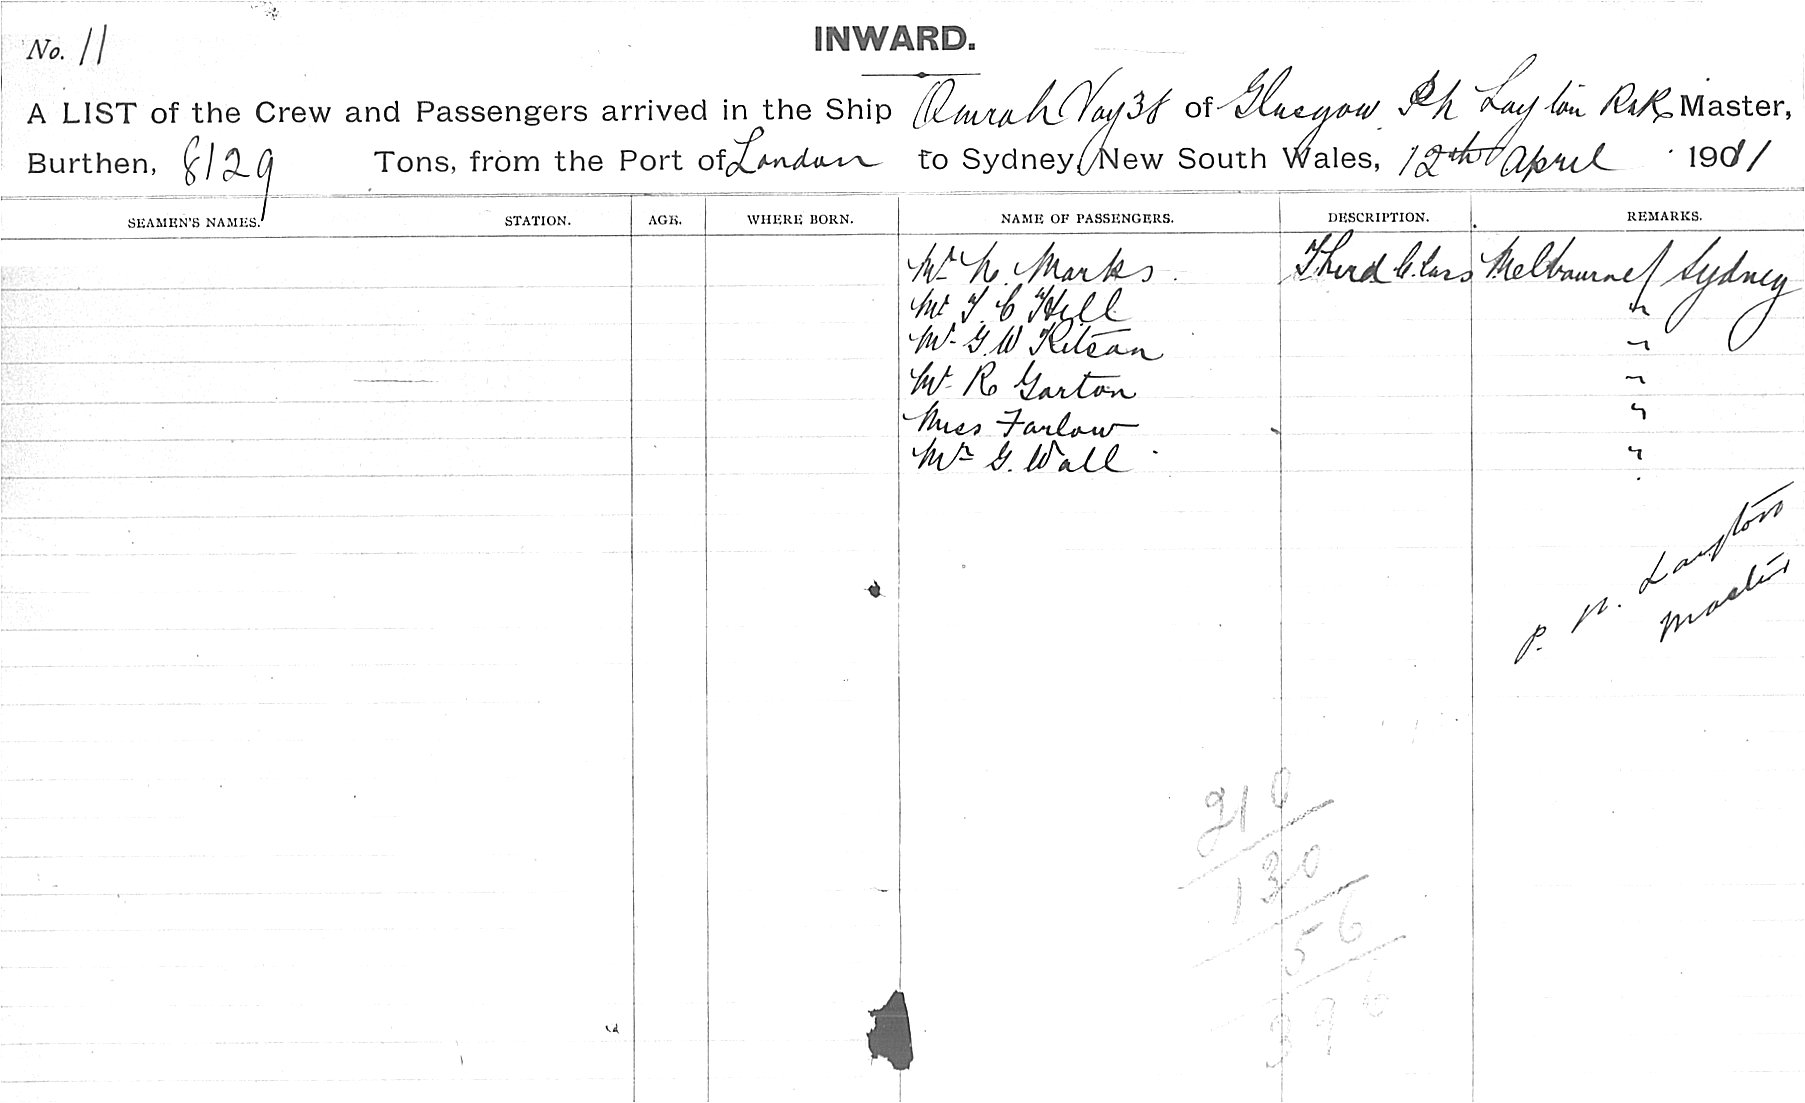 No. 11
INWARD.
A LIST of the Crew and Passengers arrived in the Ship Omrah Voy 38 of Glasgow P h Layton RNR Master,
Burthen, 8129 Tons, from the Port of London to Sydney, New South Wales, 12th April 1911
SEAMEN'S NAMES. STATION. AGE. WHERE BORN. NAME OF PASSENGERS. DESCRIPTION. REMARKS.
Mr N. Marks Third Class Melbourne / Sydney
Mr T. C Hill "
Mr G. W Kitson "
Mr R Gorton "
Miss Farlow "
Mr G. Wall "
P. N. Layton
Master
210
130
56
396